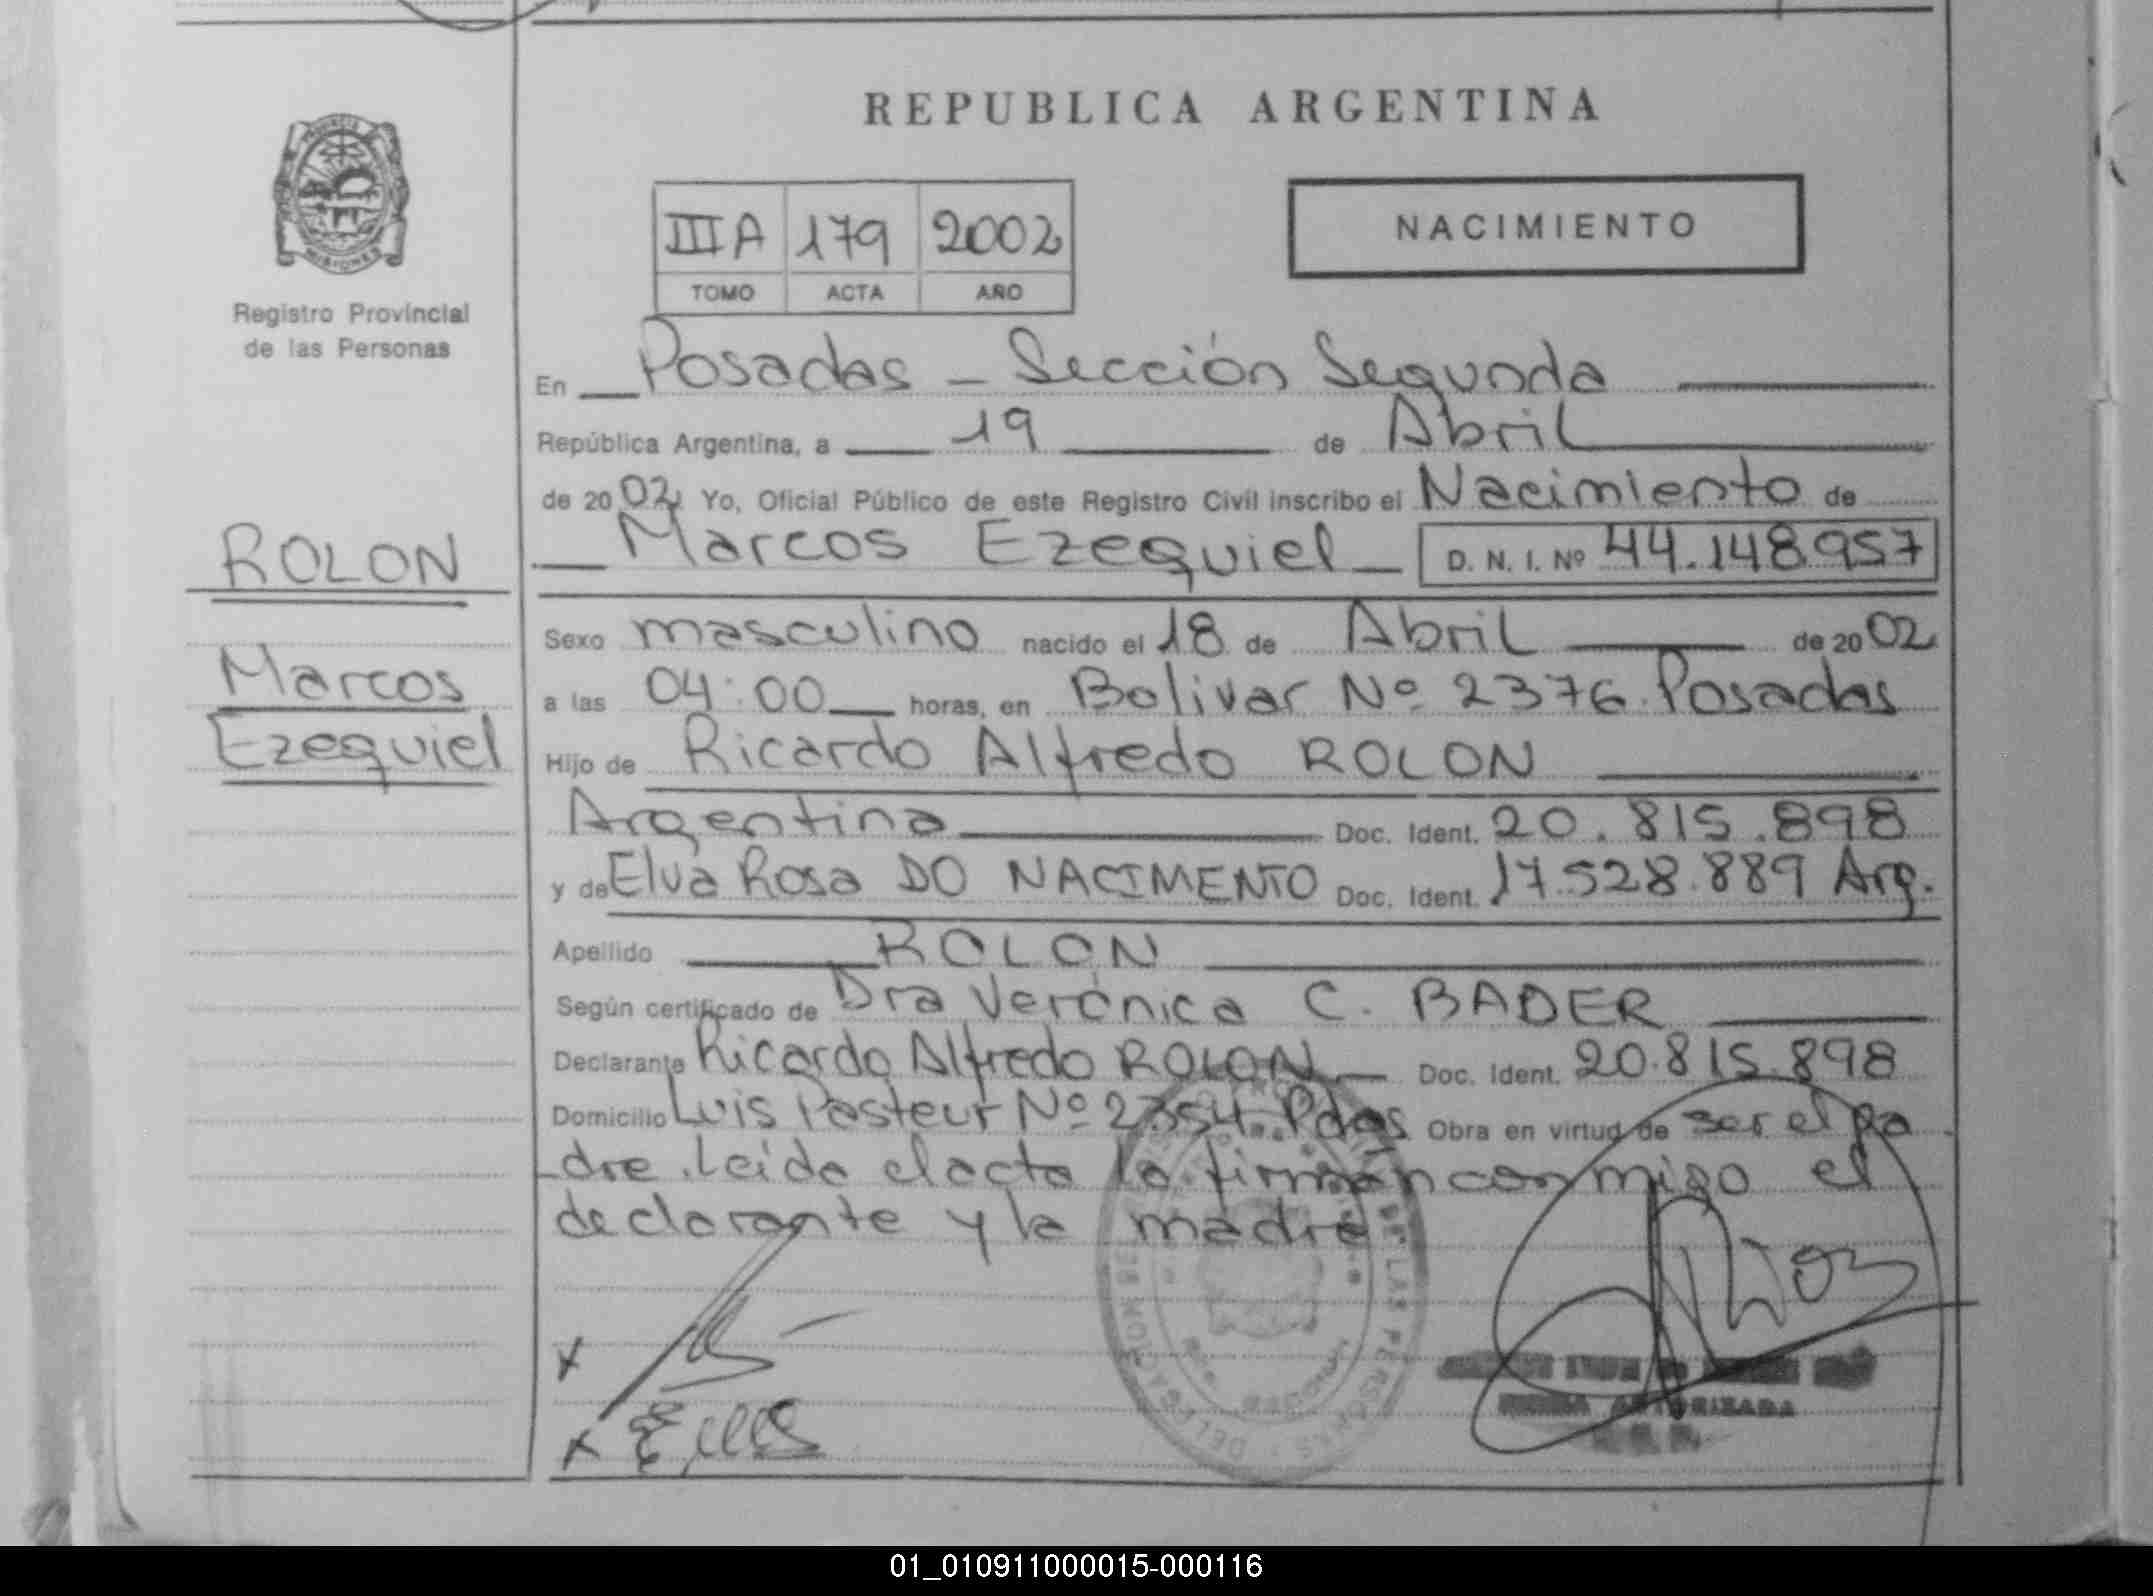 REPUBLICA ARGENTINA
PROVINCIA
MISIONES
Registro Provincial
de las Personas
IIIA 179 2002
TOMO ACTA AÑO
NACIMIENTO
En Posadas - Sección Segunda
República Argentina, a 19 de Abril
de 2002 Yo, Oficial Público de este Registro Civil inscribo el Nacimiento de
Marcos Ezequiel D. N. I. Nº 44.148.957
ROLON
Marcos
Ezequiel
Sexo masculino nacido el 18 de Abril de 2002
a las 04:00 horas, en Bolivar Nº 2376. Posadas
Hijo de Ricardo Alfredo ROLON
Argentina Doc. Ident. 20.815.898
y de Elva Rosa DO NACIMENTO Doc. Ident. 17.528.889 Arg.
Apellido ROLON
Según certificado de Dra Verónica C. BADER
Declarante Ricardo Alfredo ROLON Doc. Ident. 20.815.898
Domicilio Luis Pasteur Nº 2354. Pdas Obra en virtud de ser el pa
dre. Leida el acta la firman conmigo el
declarante y la madre.
DE LAS PERSONAS
AUTORIZADA
01_010911000015-000116